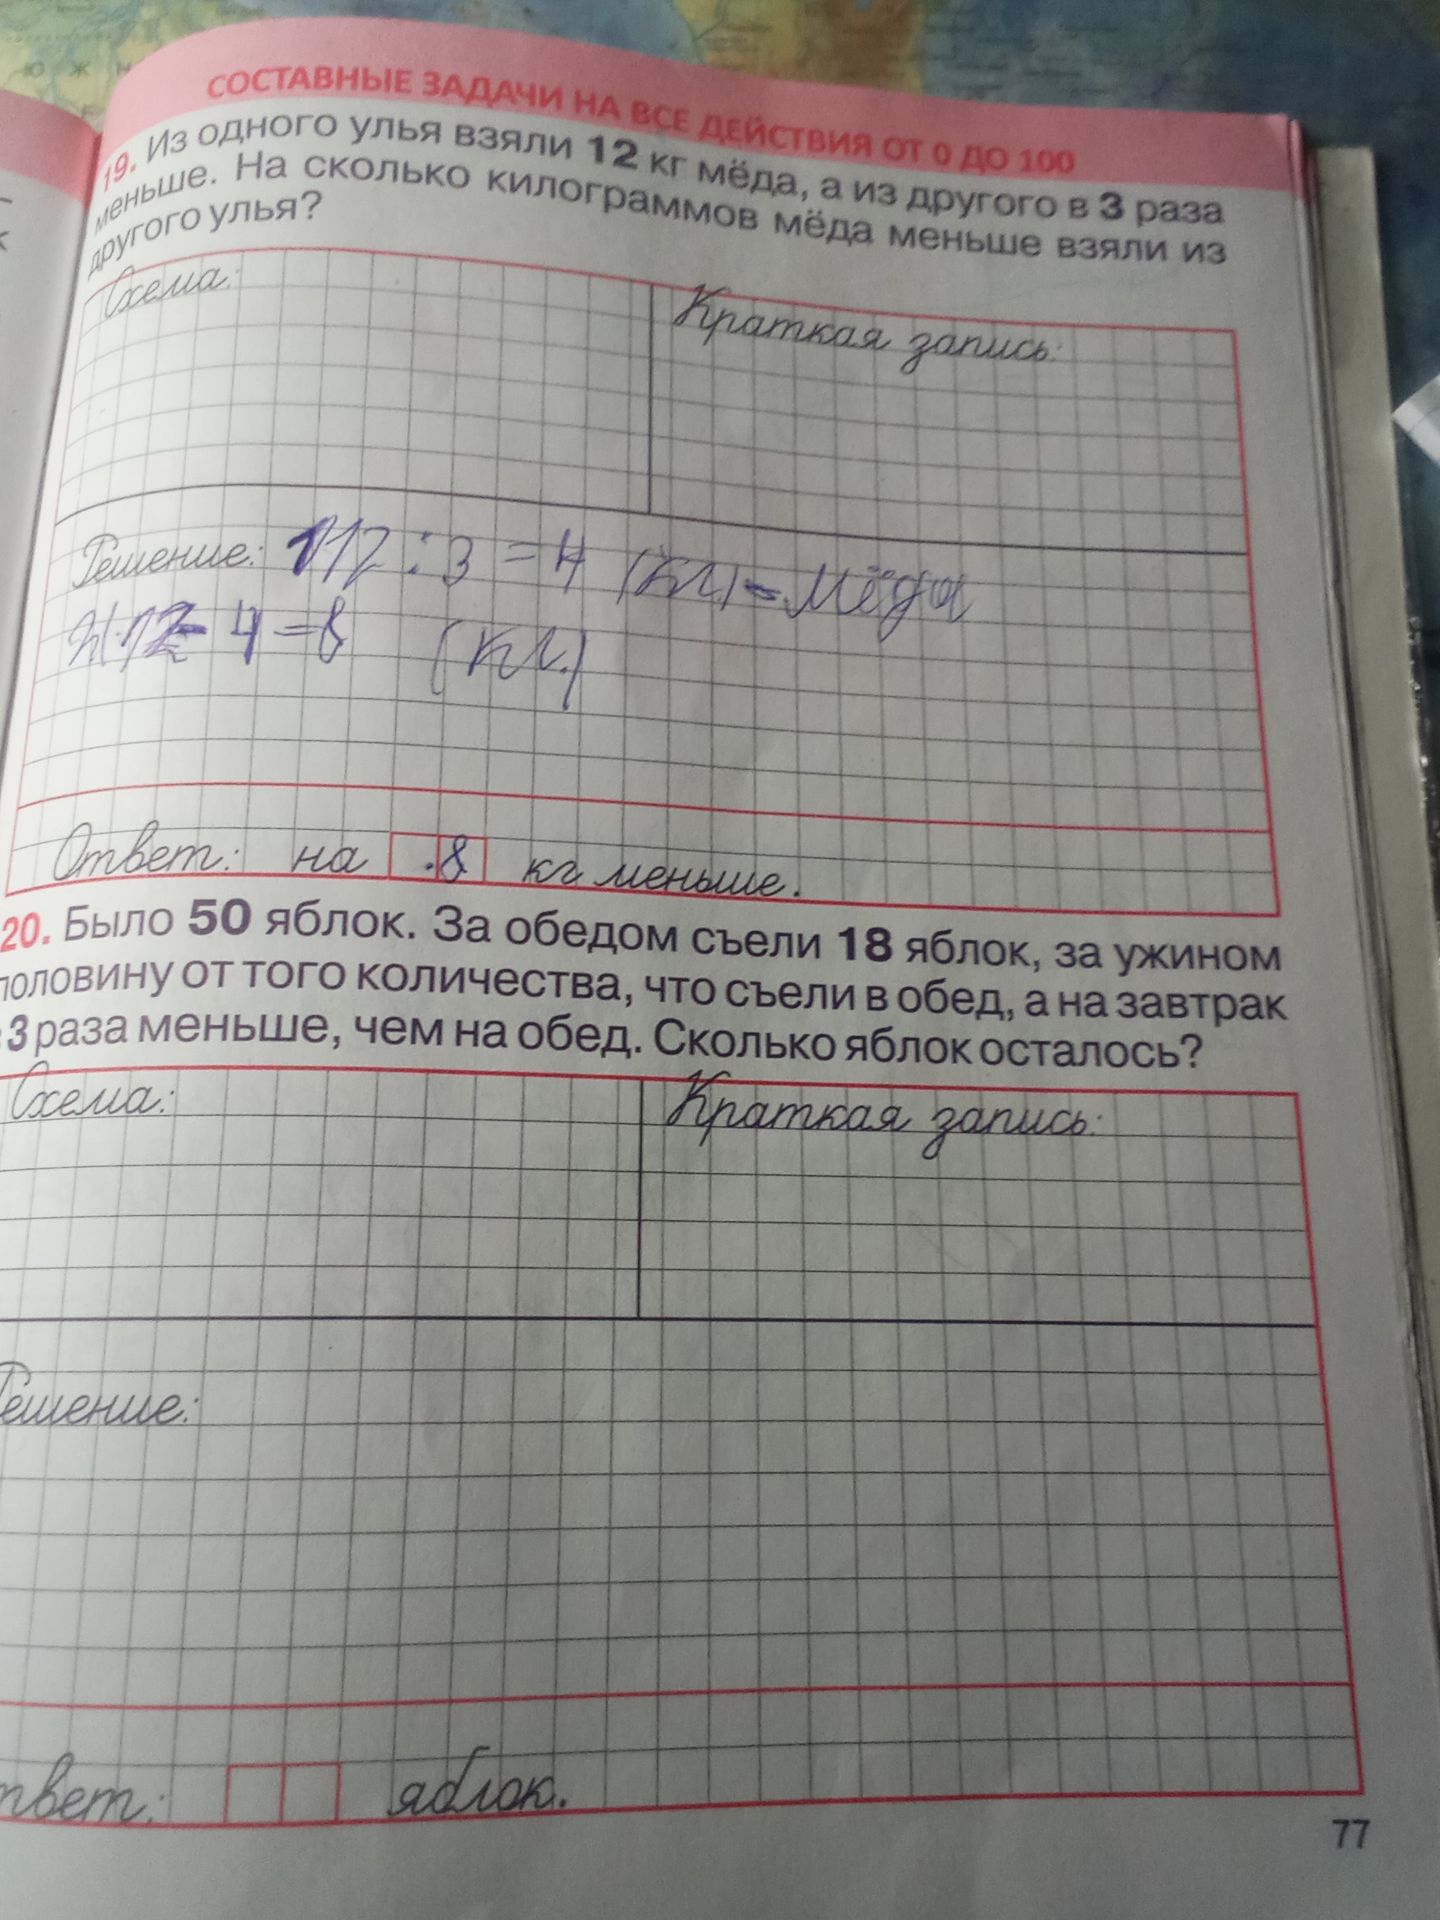 Ю Ж Н
СОСТАВНЫЕ ЗАДАЧИ НА ВСЕ ДЕЙСТВИЯ ОТ 0 ДО 100
19. Из одного улья взяли 12 кг мёда, а из другого в 3 раза
меньше. На сколько килограммов мёда меньше взяли из
другого улья?
Схема:
Краткая запись:
Решение: 1) 12 : 3 = 4 (кг.) - мёда
2) 12 - 4 = 8 (кг.)
Ответ: на 8 кг меньше.
20. Было 50 яблок. За обедом съели 18 яблок, за ужином
половину от того количества, что съели в обед, а на завтрак
3 раза меньше, чем на обед. Сколько яблок осталось?
Схема:
Краткая запись:
Решение:
твет: яблок.
77